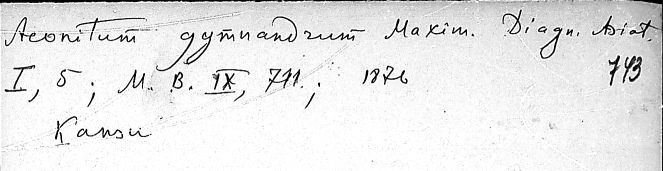 Aconitum gymnandrum Maxim. Diagn. Asiat.
I, 5; M. B. IX, 711.; 1876 743
Kansu